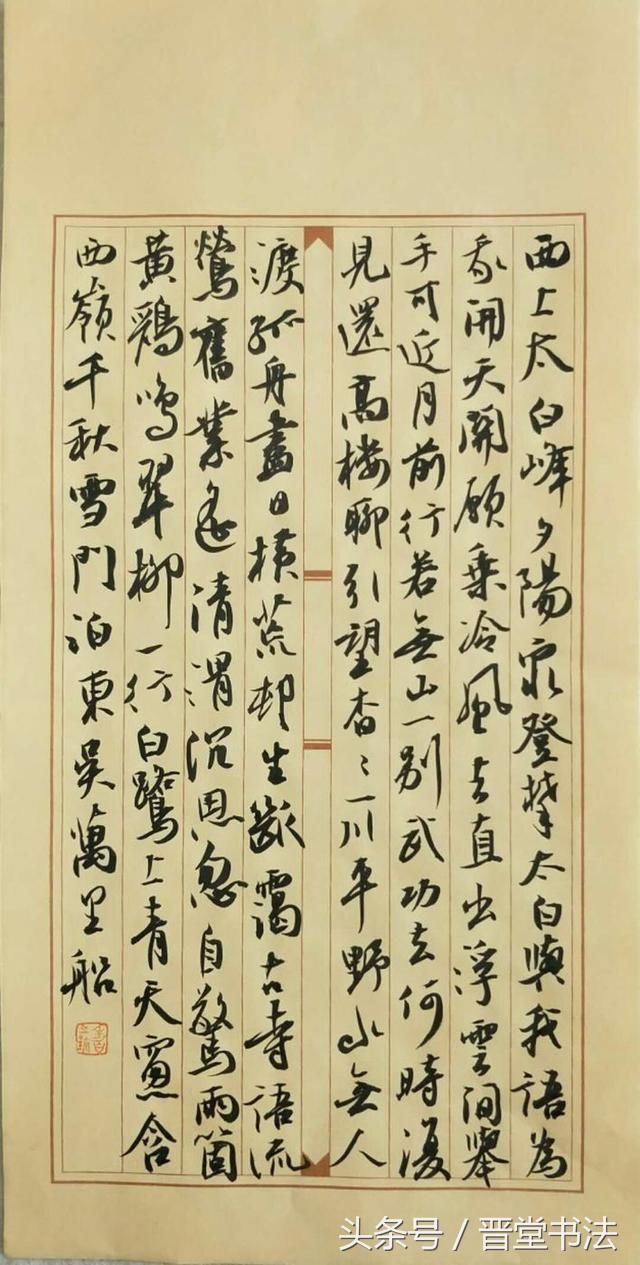 西上太白峰夕陽窮登攀太白與我語為
我開天關願乘冷風去直出浮雲間舉
手可近月前行若無山一別武功去何時復
見還高樓聊引望杳〻一川平野水無人
渡孤舟盡日橫荒邨生斷靄古寺語流
鶯舊業遙清渭沉思忽自驚兩箇
黃鸝鳴翠柳一行白鷺上青天窗含
西嶺千秋雪門泊東吳萬里船
头条号 / 晋堂书法